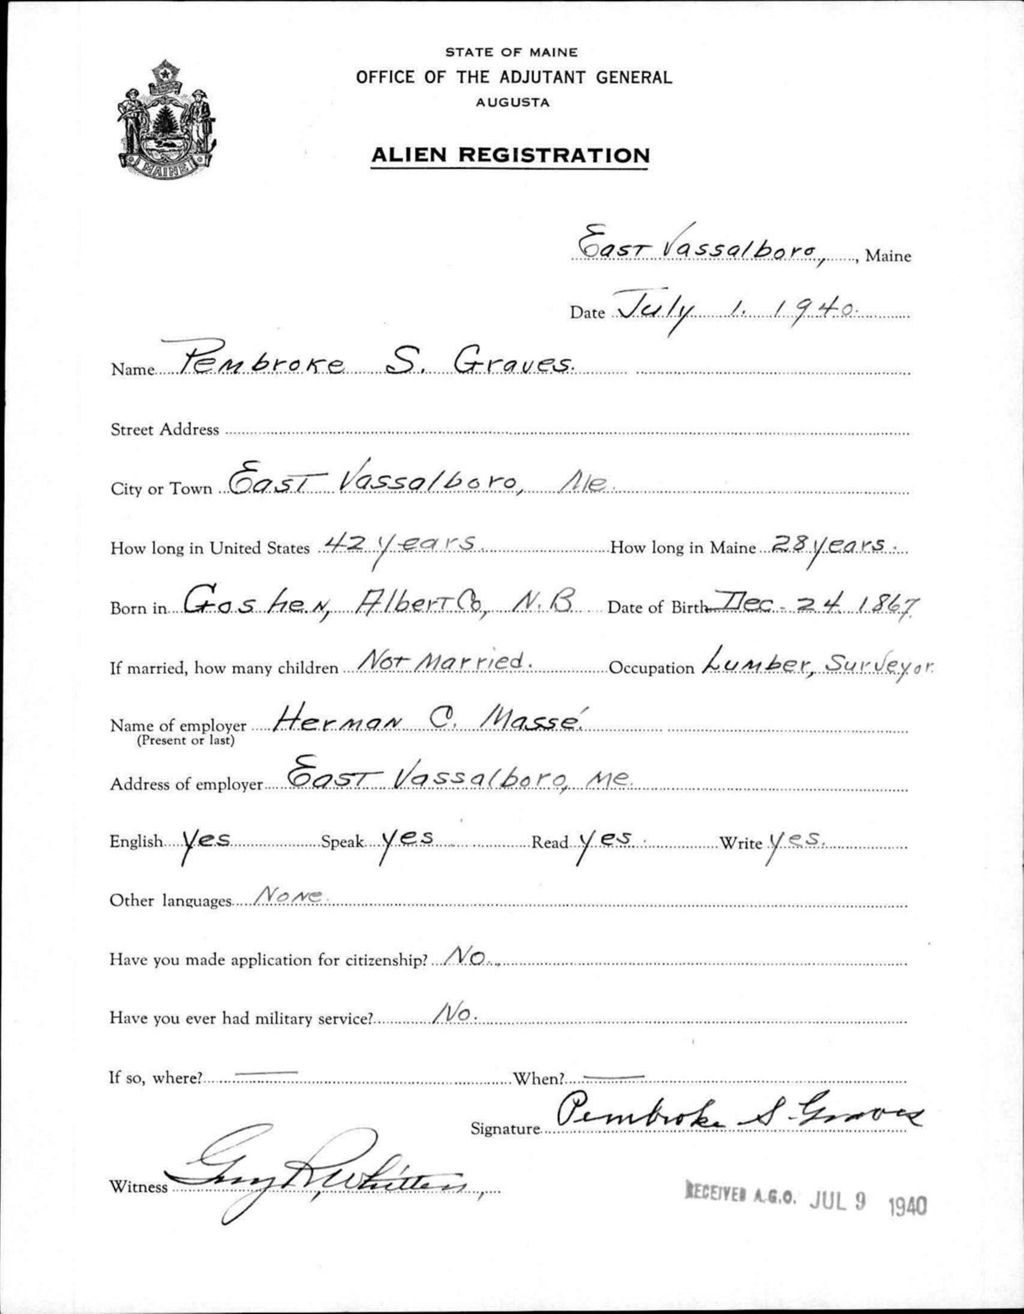 STATE OF MAINE
OFFICE OF THE ADJUTANT GENERAL
AUGUSTA
ALIEN REGISTRATION
MAINE
East Vassalboro, , Maine
Date July 1. 1940.
Name Pembroke S. Graves.
Street Address
City or Town East Vassalboro, Me.
How long in United States 42 years. How long in Maine 28 years.
Born in Goshen, Albert Co, N.B. Date of Birth Dec. 24 1867.
If married, how many children Not Married. Occupation Lumber, Surveyor.
Name of employer Herman C. Massé.
(Present or last)
Address of employer East Vassalboro, Me.
English Yes Speak yes Read yes. Write yes.
Other languages None.
Have you made application for citizenship? No.
Have you ever had military service? No.
If so, where? — When? —
Signature Pembroke S Graves
Witness Guy R. Whitten,
RECEIVED A.G.O. JUL 9 1940